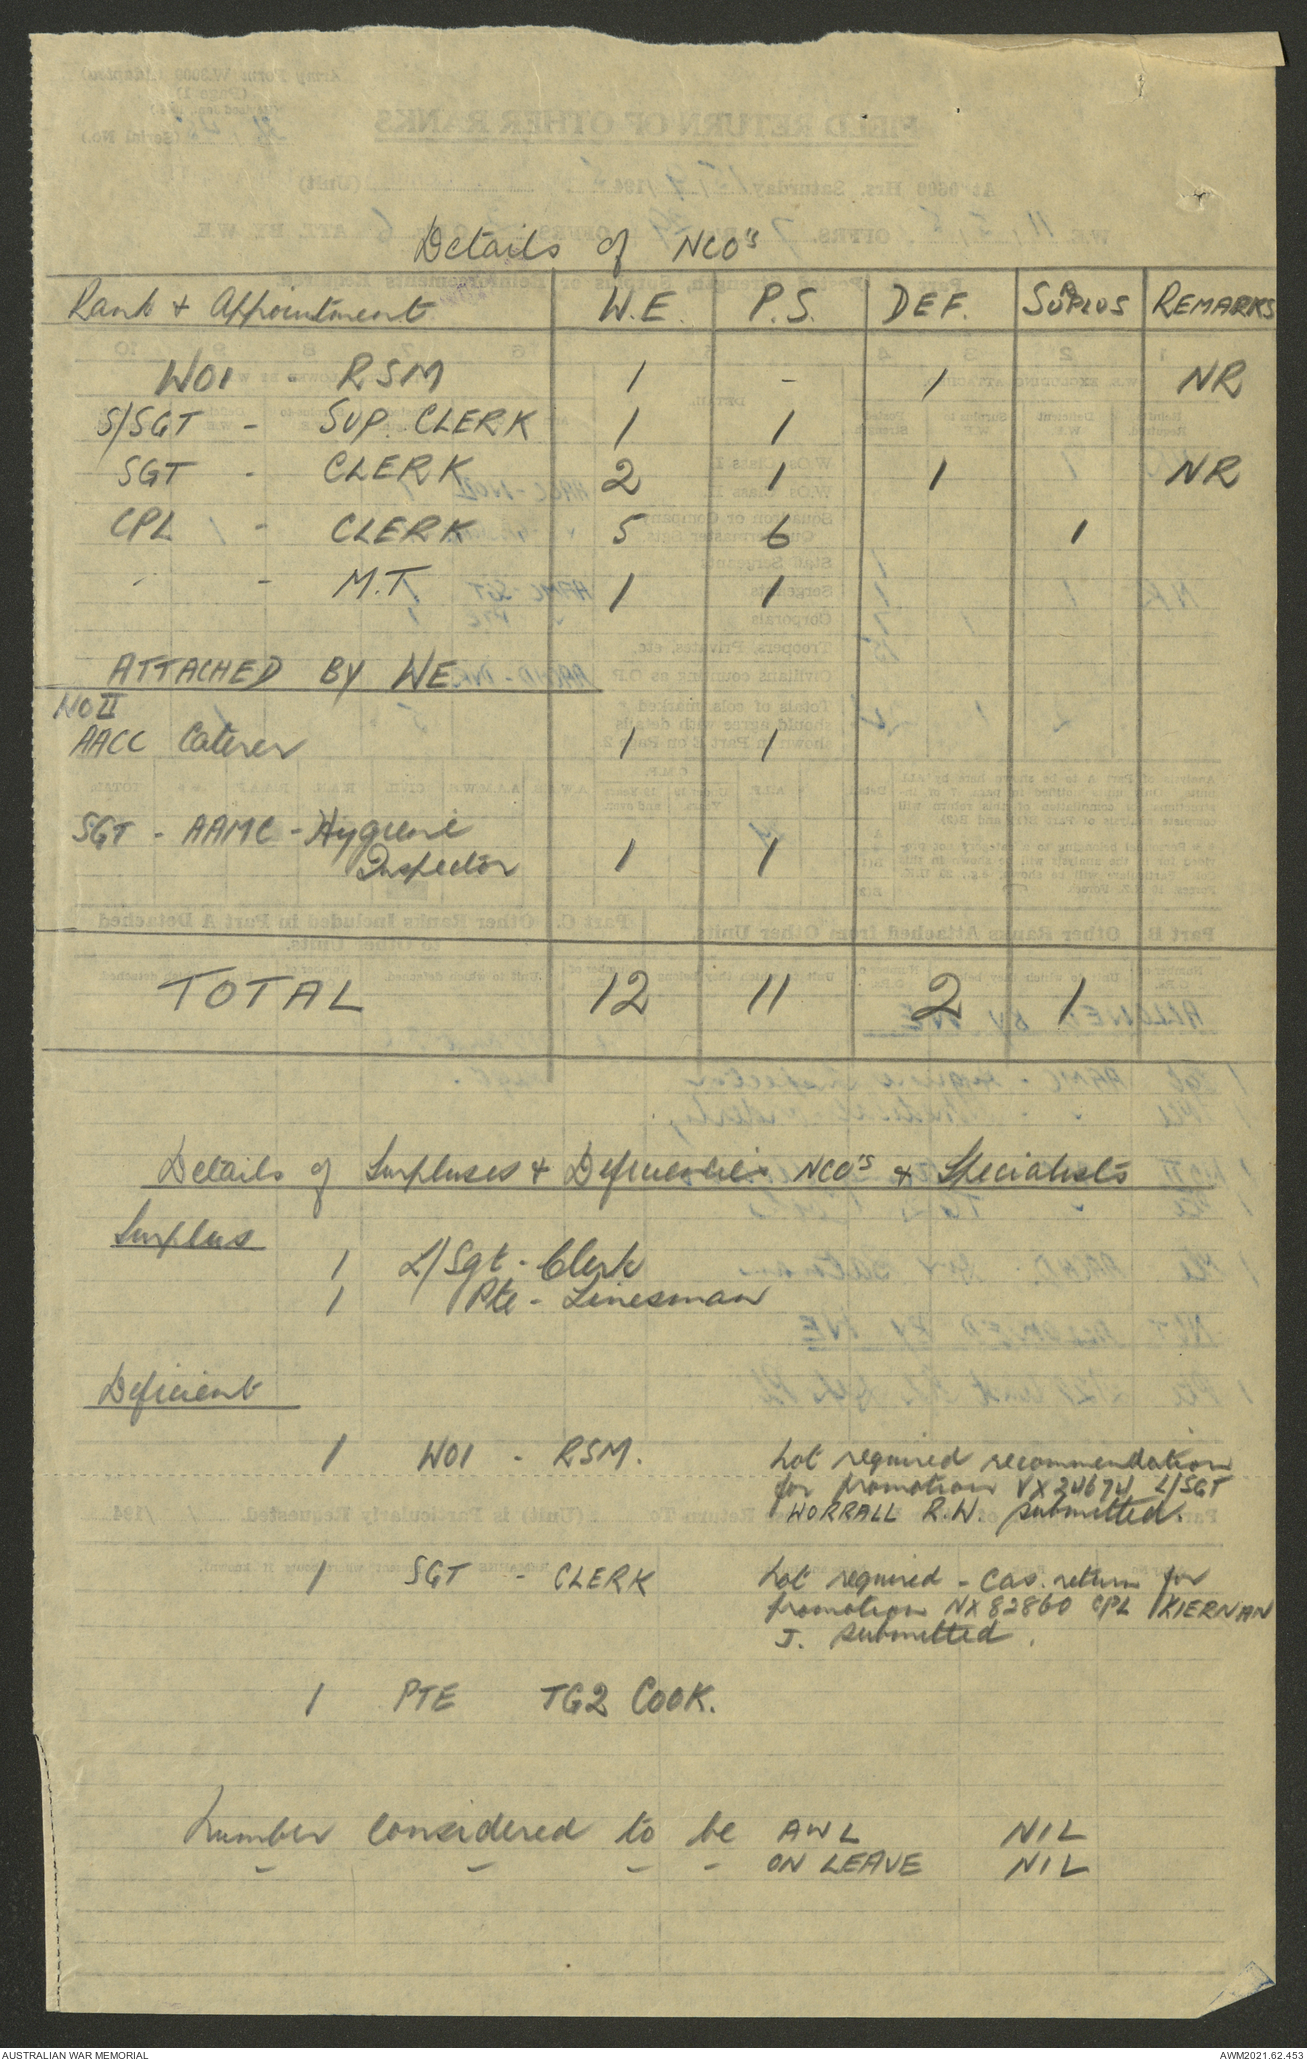 Details of NCO's
Rank & Appointment W.E. P.S. DEF. SURPLUS REMARKS
WO1 - RSM 1 - 1 NR
S/SGT - SUP. CLERK 1 1
SGT - CLERK 2 1 1 NR
CPL - CLERK 5 6 1
" - M.T. 1 1
ATTACHED BY WE
WO II
AACC Caterer 1 1
SGT - AAMC - Hygiene
Inspector 1 1
TOTAL 12 11 2 1
Details of Surpluses & Deficiencies NCO's & Specialists
Surplus
1 L/Sgt - Clerk
1 Pte - Linesman
Deficient
1 WO1 - RSM. Not required recommendation
for promotion VX24674 L/SGT
WORRALL R.W. submitted.
1 SGT - CLERK Not required - Cas. return for
promotion NX82860 CPL KIERNAN
J. submitted.
1 PTE TG2 COOK.
Number considered to be AWL NIL
- - - - ON LEAVE NIL
AUSTRALIAN WAR MEMORIAL AWM2021.62.453